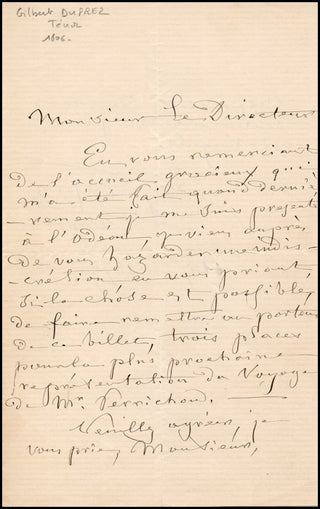 Gilbert DUPREZ
Ténor
1806-
Monsieur Le Directeur
En vous remerciant
de l'accueil gracieux qui
m'a été fait quand derniè
rement je me suis présenté
à l'Odéon je viens auprès
de vous hazarder une indis-
crétion en vous priant
si la chose est possible,
de faire remettre au porteur
de ce billet, trois places
pour la plus prochaine
représentation du Voyage
de Mr. Perrichon.
Veuillez agréer, je
vous prie, Monsieur,